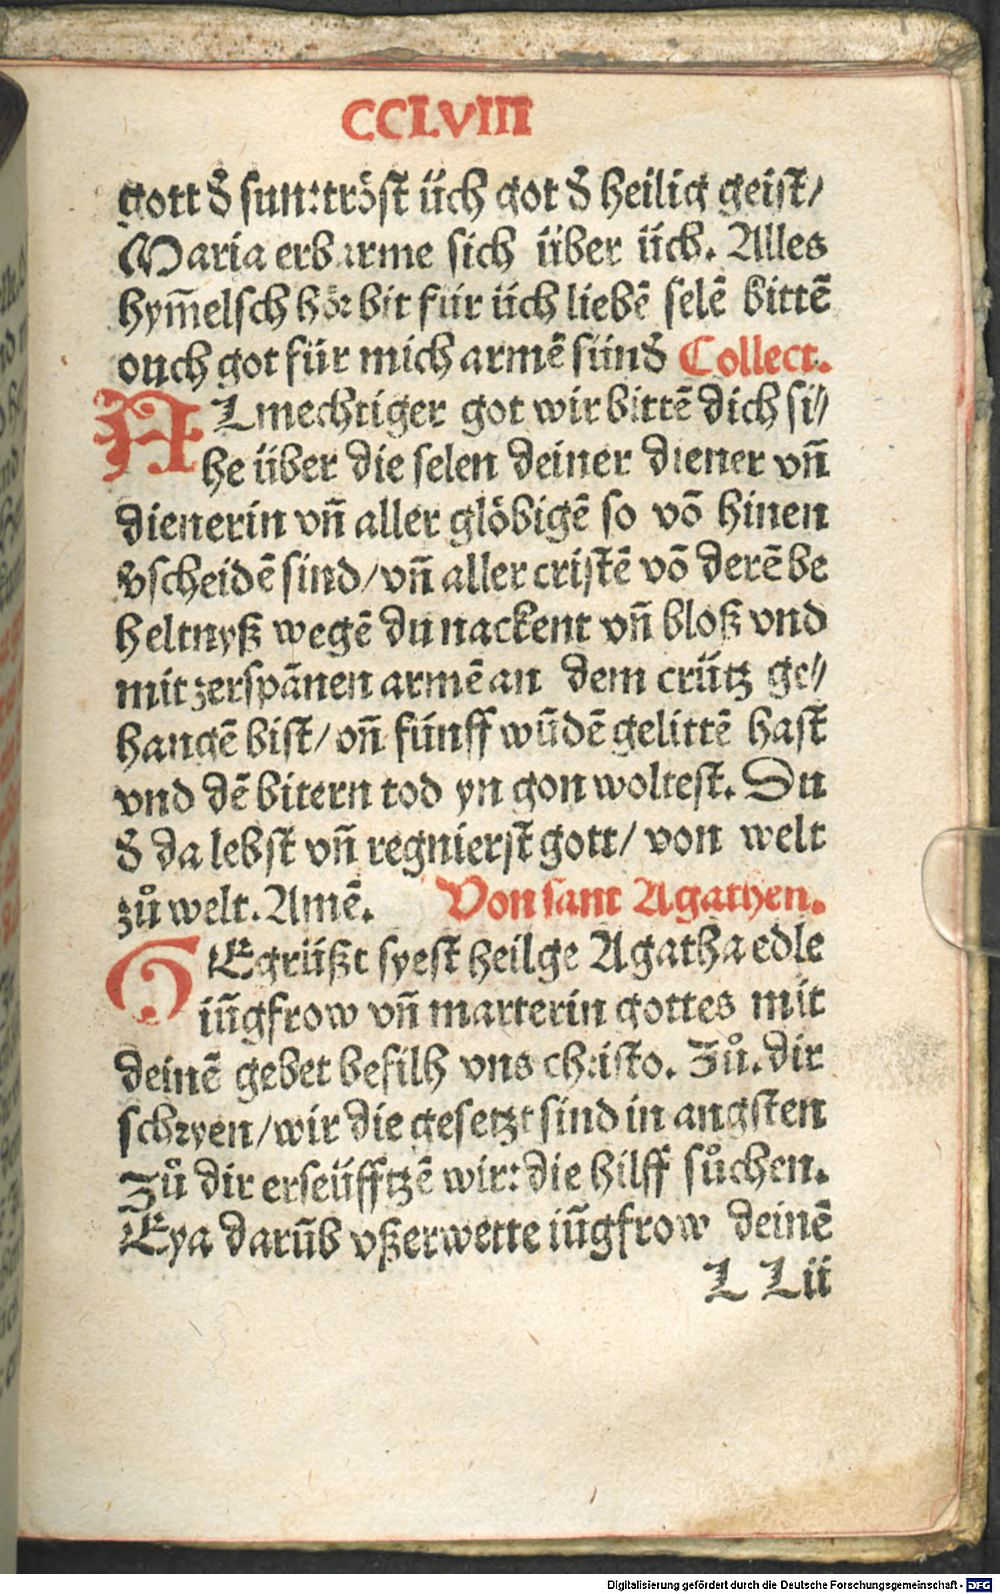 CCLVIII
gott d̕ sun: tröst üch got d̕ heilig geist/
Maria erbarme sich über üch. Alles
hym̄elsch hör bit für üch liebē selē bittē
ouch got für mich armē sünd̕ Collect.
ALmechtiger got wir bittē dich si⸗
he über die selen deiner diener vn̄
dienerin vn̄ aller glöbigē so vō hinen
v̕scheidē sind/ vn̄ aller cristē vō derē be
heltnyß wegē du nackent vn̄ bloß vnd
mit zerspānen armē an dem crütz ge⸗
hangē bist/ on̄ fünff wūdē gelittē hast
vnd dē bitern tod yn gon woltest. Du
d̕ da lebst vn̄ regnierst gott/ von welt
zů welt. Amē. Von sant Agathen.
GEgrüßt syest heilge Agatha edle
iūgfrow vn̄ marterin gottes mit
deinē gebet befilh vns christo. Zů. dir
schryen/ wir die gesetzt sind in angsten
Zů dir erseüfftzē wir: die hilff sůchen.
Eya darūb vßerwette iūgfrow deinē
L Lii
Digitalisierung gefördert durch die Deutsche Forschungsgemeinschaft - DFG